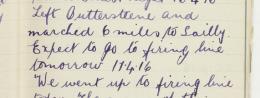 Left Outtersteene and
marched 6 miles to Sailly.
Expect to go to firing line
tomorrow 11 4 16
We went up to firing line